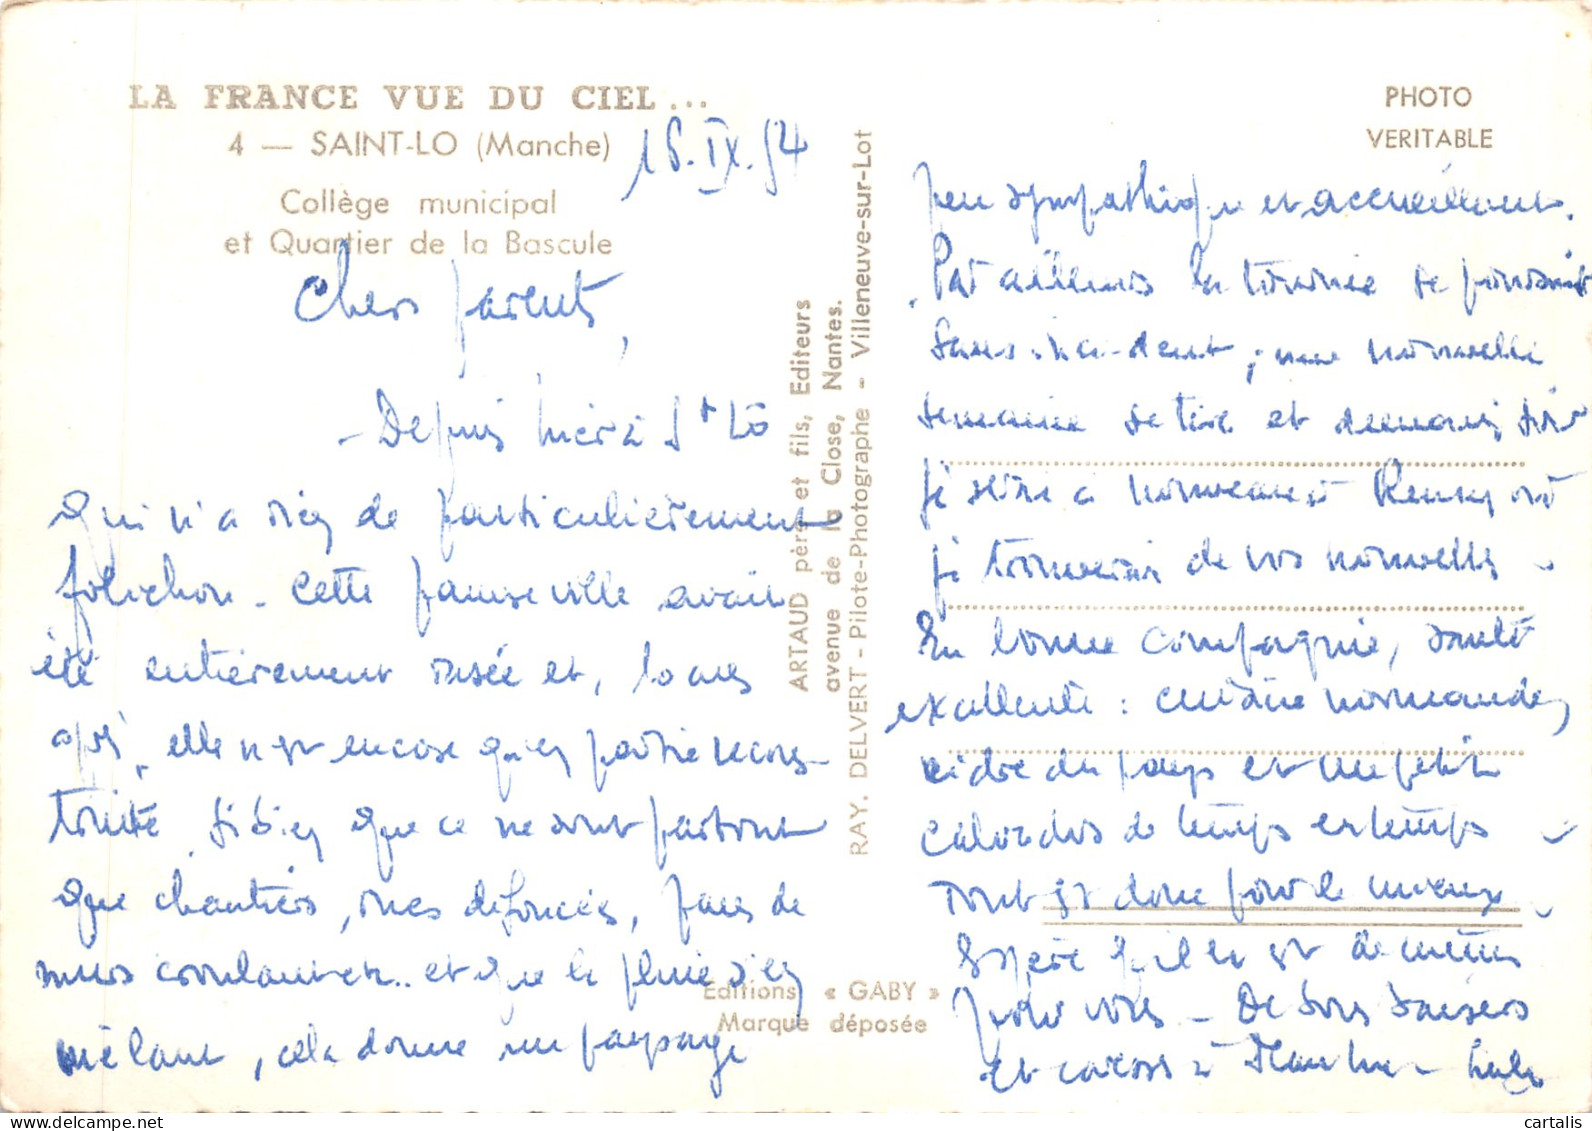 LA FRANCE VUE DU CIEL...
4 — SAINT-LO (Manche)
Collège municipal
et Quartier de la Bascule
IX.54
Chers parents,
- Depuis hier à St Lô
qui n'a rien de particulièrement
folichon - Cette pauvre ville avait
été entièrement rasée et, 10 ans
après, elle n'est encore qu'en partie recons-
truite si bien que ce ne sont partout
que chantiers, rues défoncées, pans de
murs croulants.. et que la pluie s'en
mêlant, cela donne un paysage
ARTAUD père et fils, Editeurs
avenue de la Close, Nantes.
RAY. DELVERT - Pilote-Photographe - Villeneuve-sur-Lot
Editions « GABY »
Marque déposée
PHOTO
VERITABLE
peu sympathique et accueillant.
Par ailleurs la tournée se poursuit
sans incident ; une nouvelle
semaine se tire et demain soir
je serai à nouveau à où
je trouverai de vos nouvelles -
En bonne compagnie, santé
excellente : cuisine normande,
cidre du pays et un petit
calvados de temps en temps -
Tout est donc pour le mieux -
Espère qu'il en est de même
pour vous - De bons baisers
et caresses à